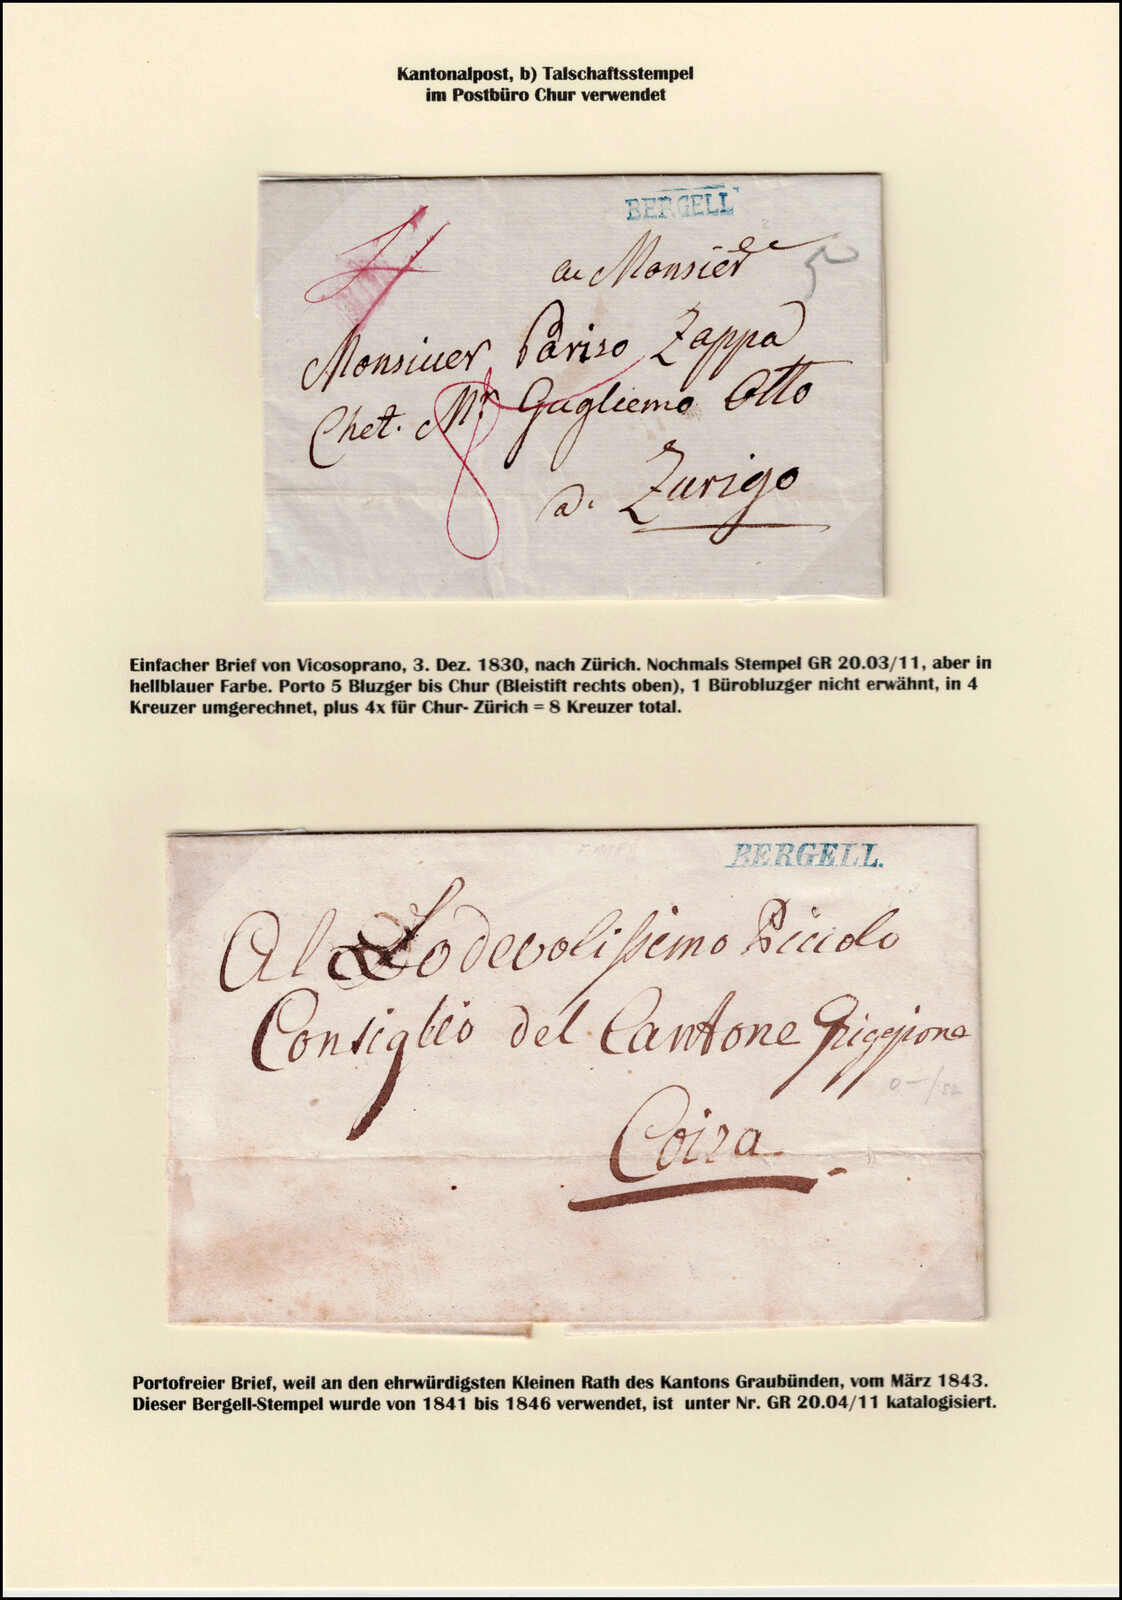 Kantonalpost, b) Talschaftsstempel
im Postbüro Chur verwendet
BERGELL
a Monsieur
5
4
Monsiuer Pariso Zappa
Chet. Mr. Gugliemo Otto
8
a. Zurigo
Einfacher Brief von Vicosoprano, 3. Dez. 1830, nach Zürich. Nochmals Stempel GR 20.03/11, aber in
hellblauer Farbe. Porto 5 Bluzger bis Chur (Bleistift rechts oben), 1 Bürobluzger nicht erwähnt, in 4
Kreuzer umgerechnet, plus 4x für Chur- Zürich = 8 Kreuzer total.
BERGELL.
Al Lodevolissimo Piccolo
Consiglio del Cantone Griggione
Coira
Portofreier Brief, weil an den ehrwürdigsten Kleinen Rath des Kantons Graubünden, vom März 1843.
Dieser Bergell-Stempel wurde von 1841 bis 1846 verwendet, ist unter Nr. GR 20.04/11 katalogisiert.